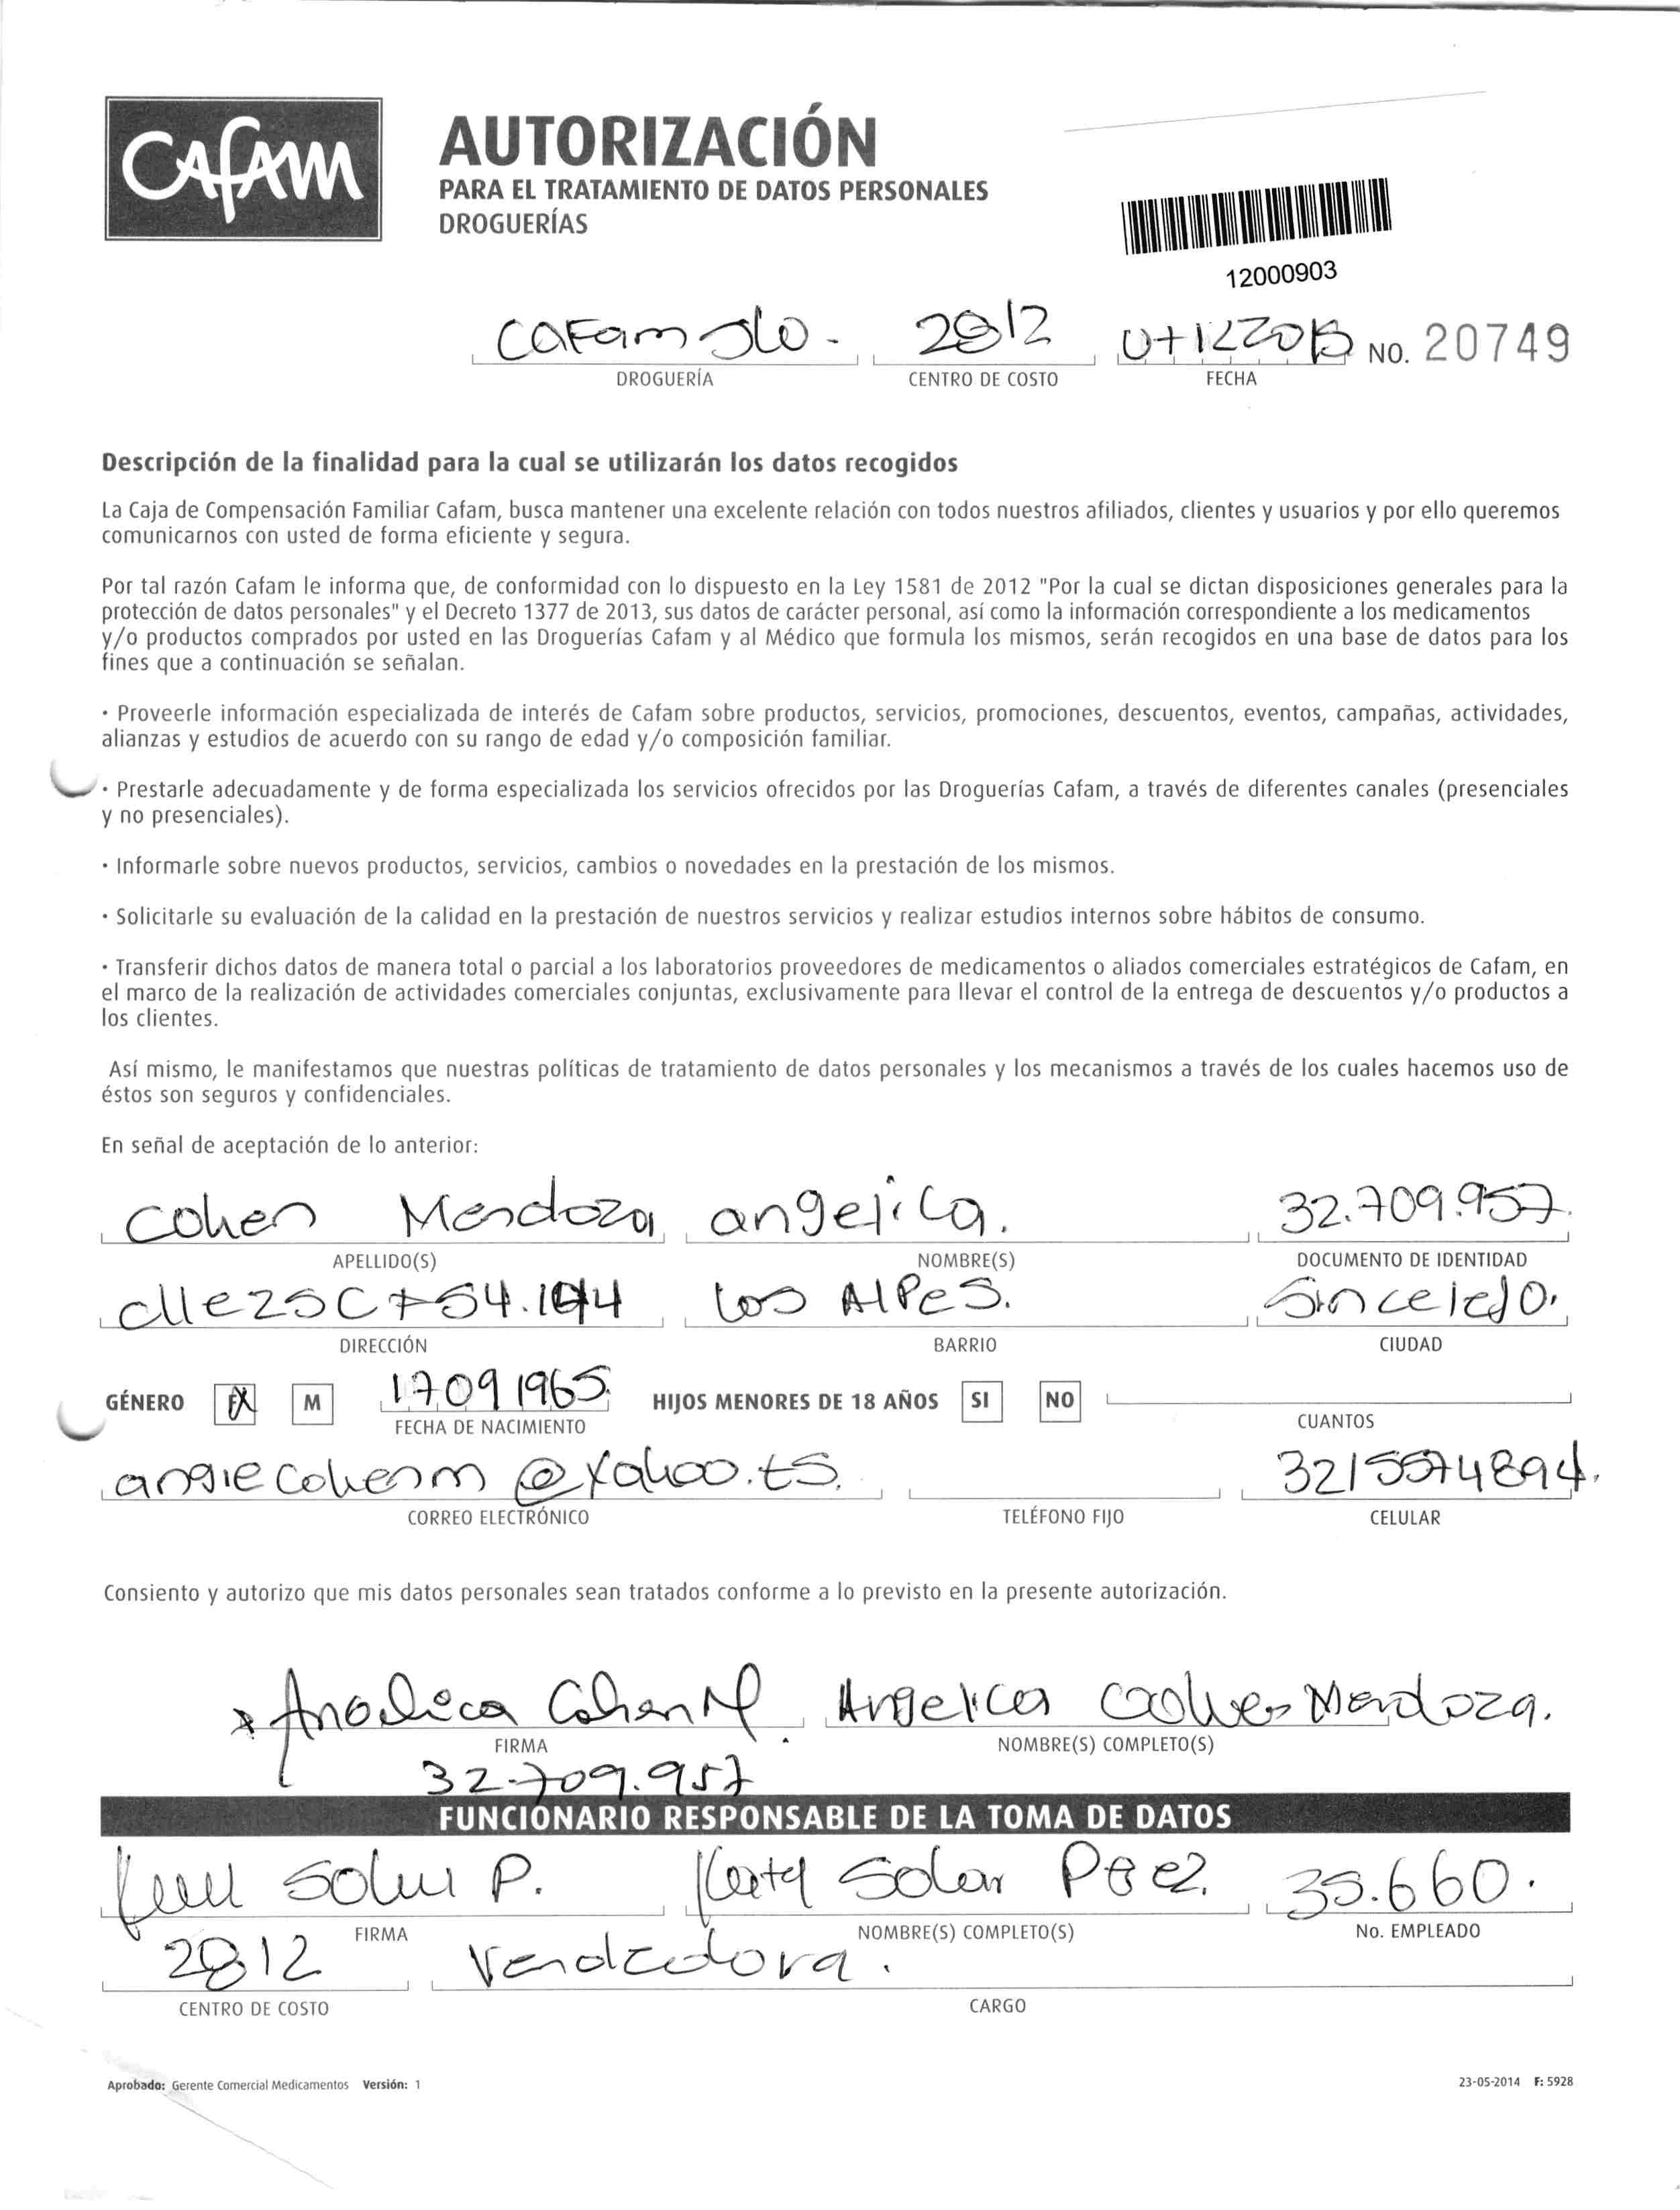 CAFAM
AUTORIZACIÓN
PARA EL TRATAMIENTO DE DATOS PERSONALES
DROGUERÍAS
12000903
Cafam 2812 NO. 20749
DROGUERÍA CENTRO DE COSTO FECHA
Descripción de la finalidad para la cual se utilizarán los datos recogidos
La Caja de Compensación Familiar Cafam, busca mantener una excelente relación con todos nuestros afiliados, clientes y usuarios y por ello queremos
comunicarnos con usted de forma eficiente y segura.
Por tal razón Cafam le informa que, de conformidad con lo dispuesto en la Ley 1581 de 2012 "Por la cual se dictan disposiciones generales para la
protección de datos personales" y el Decreto 1377 de 2013, sus datos de carácter personal, así como la información correspondiente a los medicamentos
y/o productos comprados por usted en las Droguerías Cafam y al Médico que formula los mismos, serán recogidos en una base de datos para los
fines que a continuación se señalan.
• Proveerle información especializada de interés de Cafam sobre productos, servicios, promociones, descuentos, eventos, campañas, actividades,
alianzas y estudios de acuerdo con su rango de edad y/o composición familiar.
• Prestarle adecuadamente y de forma especializada los servicios ofrecidos por las Droguerías Cafam, a través de diferentes canales (presenciales
y no presenciales).
• Informarle sobre nuevos productos, servicios, cambios o novedades en la prestación de los mismos.
• Solicitarle su evaluación de la calidad en la prestación de nuestros servicios y realizar estudios internos sobre hábitos de consumo.
• Transferir dichos datos de manera total o parcial a los laboratorios proveedores de medicamentos o aliados comerciales estratégicos de Cafam, en
el marco de la realización de actividades comerciales conjuntas, exclusivamente para llevar el control de la entrega de descuentos y/o productos a
los clientes.
Así mismo, le manifestamos que nuestras políticas de tratamiento de datos personales y los mecanismos a través de los cuales hacemos uso de
éstos son seguros y confidenciales.
En señal de aceptación de lo anterior:
Cohen Mendoza angelica. 32.709.957.
APELLIDO(S) NOMBRE(S) DOCUMENTO DE IDENTIDAD
Los Alpes. Sincelejo.
DIRECCIÓN BARRIO CIUDAD
GÉNERO F M 17091965 HIJOS MENORES DE 18 AÑOS SI NO
FECHA DE NACIMIENTO CUANTOS
angiecohenm@yahoo.es. 3215574894.
CORREO ELECTRÓNICO TELÉFONO FIJO CELULAR
Consiento y autorizo que mis datos personales sean tratados conforme a lo previsto en la presente autorización.
Angelica Cohen M. Angelica Cohen Mendoza.
FIRMA NOMBRE(S) COMPLETO(S)
32.709.957
FUNCIONARIO RESPONSABLE DE LA TOMA DE DATOS
P. Solar 35.660.
FIRMA NOMBRE(S) COMPLETO(S) No. EMPLEADO
2812 Vendedora.
CENTRO DE COSTO CARGO
Aprobado: Gerente Comercial Medicamentos Versión: 1 23-05-2014 F: 5928